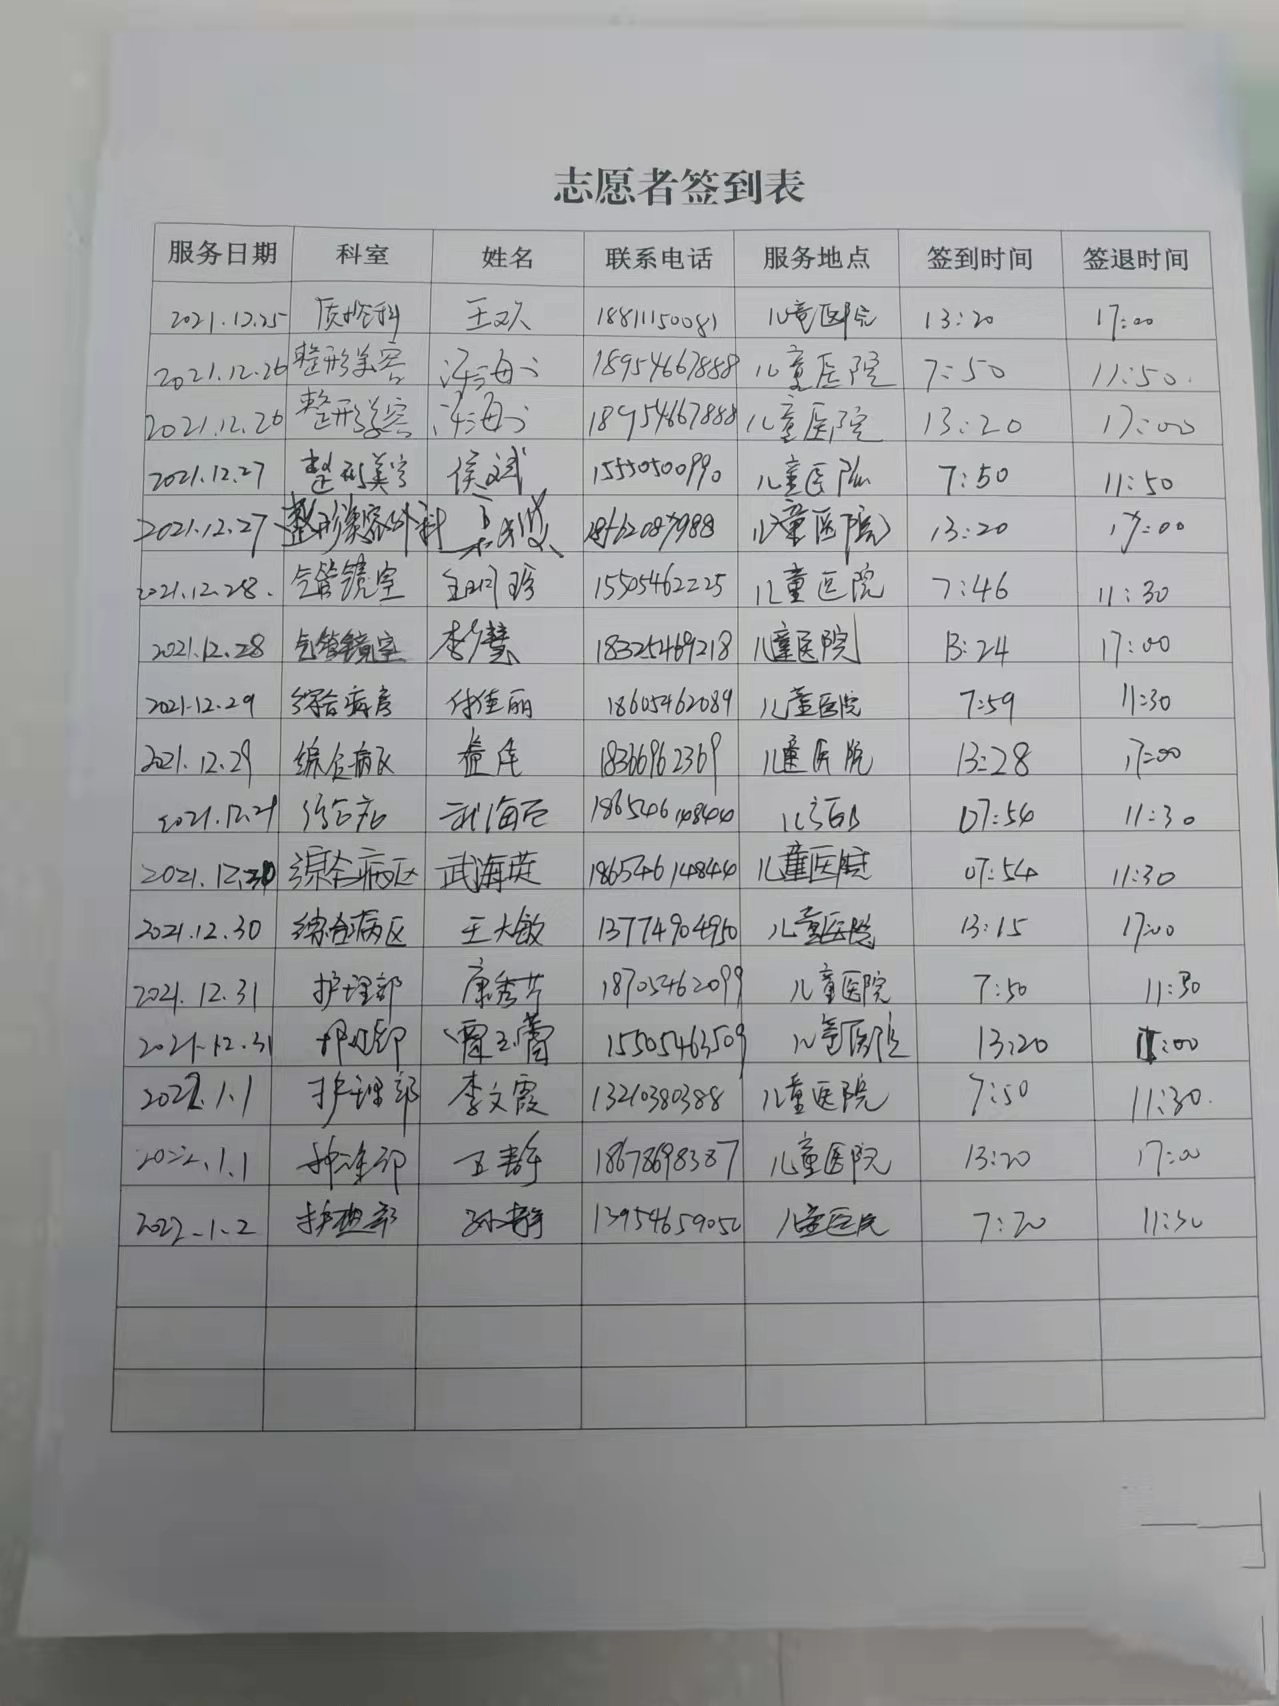 志愿者签到表
服务日期 科室 姓名 联系电话 服务地点 签到时间 签退时间
2021.12.25 质控科 18811150081 儿童医院 13:20 17:00
2021.12.26 整形美容 18954667888 儿童医院 7:50 11:50.
2021.12.26 整形美容 18954667888 儿童医院 13:20 17:00
2021.12.27 整形美容 侯斌 15550500990 儿童医院 7:50 11:50
2021.12.27 整形美容外科 儿童医院 13:20 17:00
2021.12.28. 气管镜室 15505462225 儿童医院 7:46 11:30
2021.12.28 气管镜室 李慧 18325469218 儿童医院 13:24 17:00
2021.12.29 综合病房 付佳丽 18605462089 儿童医院 7:59 11:30
2021.12.29 综合病区 18366962369 儿童医院 13:28 17:00
2021.12.29 武海 186546148444 07:54 11:30
2021.12.30 综合病区 武海英 186546148444 儿童医院 07:54 11:30
2021.12.30 综合病区 王大敏 13774904950 儿童医院 13:15 17:00
2021.12.31 护理部 康秀芹 18705462099 儿童医院 7:50 11:30
2021.12.31 护理部 15505463509 儿童医院 13:20 :00
2022.1.1 护理部 李文霞 13210380388 儿童医院 7:50 11:30.
2022.1.1 护理部 王静 18678698387 儿童医院 13:20 17:00
2022.1.2 护理部 孙静 儿童医院 7:20 11:30